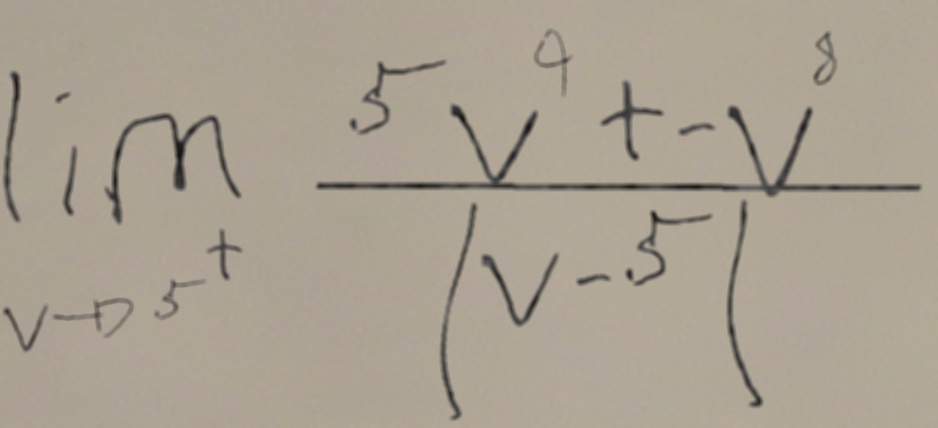 \lim_{v \to 5^+} \frac{5v^9 + -v^8}{|v-5|}